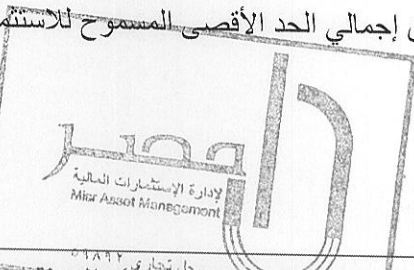 إجمالي الحد الأقصى المسموح للاستثم
مصر
لإدارة الإستثمارات المالية
Misr Asset Management
٥٩٨٩٢